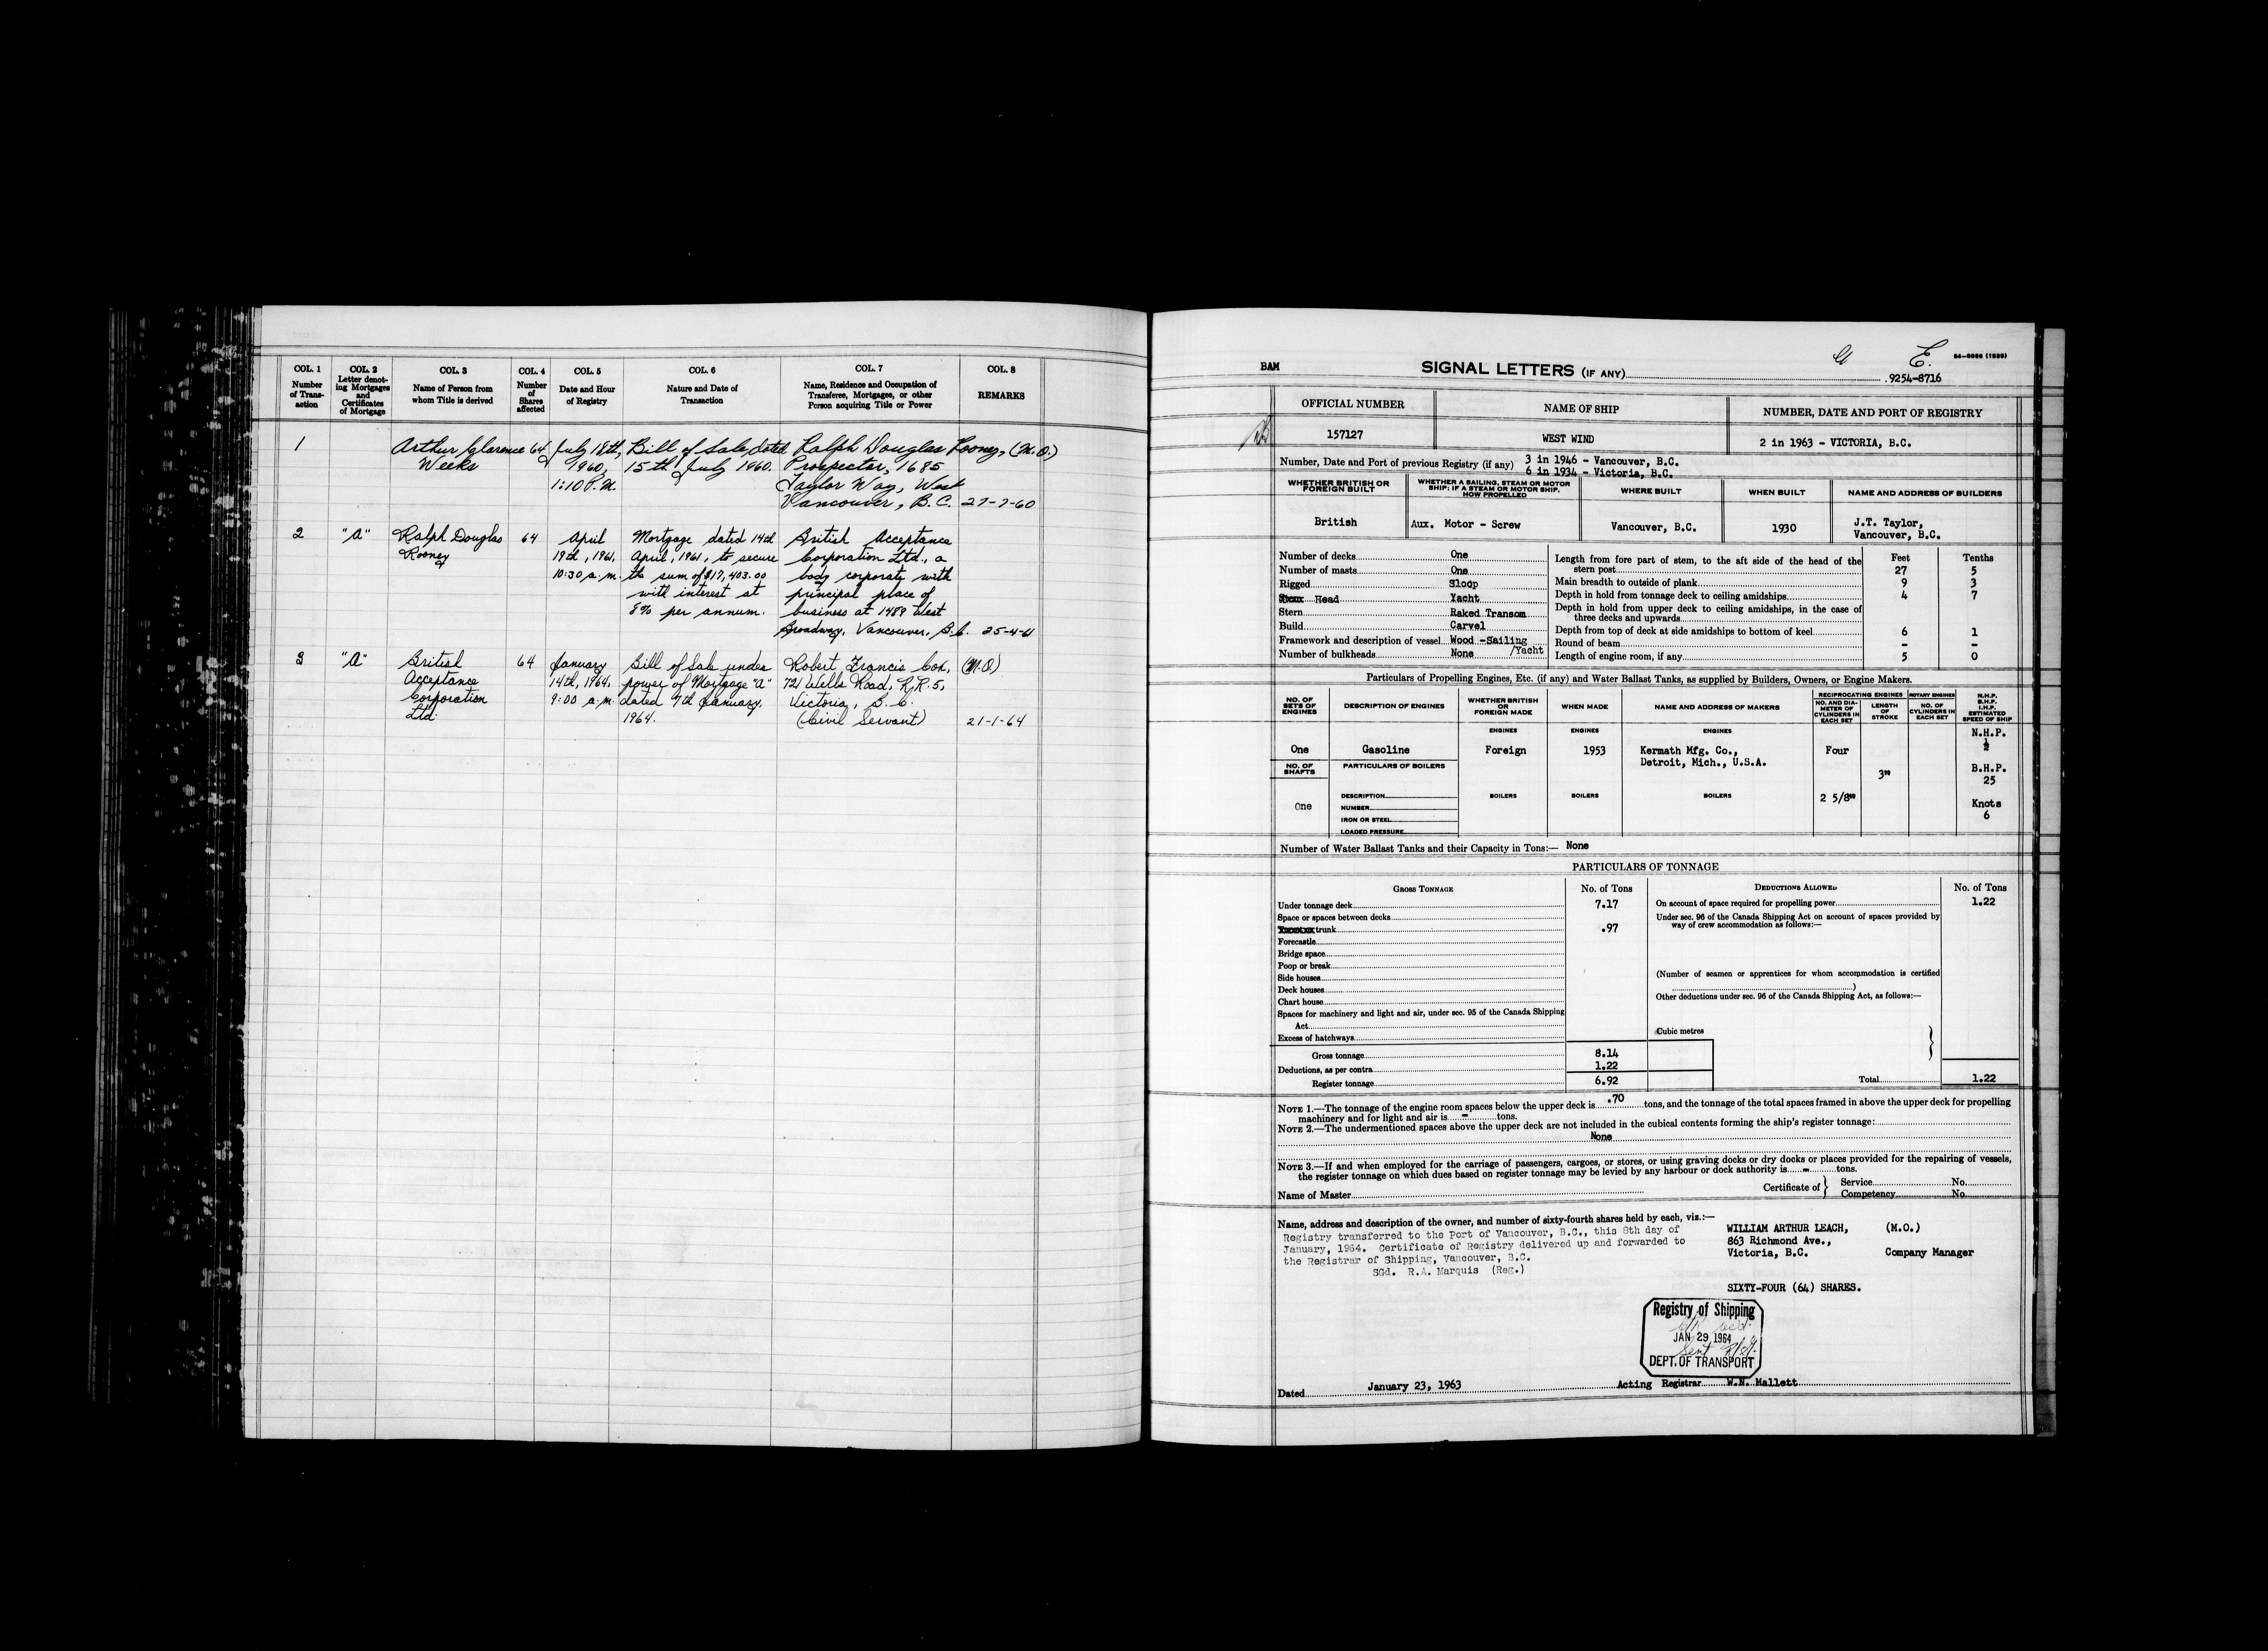 COL. 1 COL. 2 COL. 3 COL. 4 COL. 5 COL. 6 COL. 7 COL. 8
Number of Trans- action
Letter denot- ing Mortgages and Certificates of Mortgage
Name of Person from whom Title is derived
Number of Shares affected
Date and Hour of Registry
Nature and Date of Transaction
Name, Residence and Occupation of Transferee, Mortgagee, or other Person acquiring Title or Power
REMARKS
1 Arthur Clarence 64 July 18th, Bill of Sale dated Ralph Douglas Rooney, (M.O)
Weeks 1960, 15th July 1960. Prospector, 1685
1:10 P.M. Taylor Way, West
Vancouver, B.C. 27-7-60
2 "A" Ralph Douglas 64 April Mortgage dated 14th British Acceptance
Rooney 19th, 1961, April, 1961, to secure Corporation Ltd., a
10:30 a.m. the sum of $17,403.00 body corporate with
with interest at principal place of
8% per annum. business at 1489 West
Broadway, Vancouver, B.C. 25-4-61
3 "A" British 64 January Bill of Sale under Robert Francis Cox, (M.O)
Acceptance 14th, 1964, power of Mortgage "A" 721 Wells Road, R.R.5,
Corporation 9:00 a.m. dated 7th January, Victoria, B.C.
Ltd. 1964. (Civil Servant) 21-1-64
BAM SIGNAL LETTERS (IF ANY) 9254-8716
E.
OFFICIAL NUMBER NAME OF SHIP NUMBER, DATE AND PORT OF REGISTRY
157127 WEST WIND 2 in 1963 - VICTORIA, B.C.
Number, Date and Port of previous Registry (if any) 3 in 1946 - Vancouver, B.C.
6 in 1934 - Victoria, B.C.
WHETHER BRITISH OR FOREIGN BUILT
WHETHER A SAILING, STEAM OR MOTOR SHIP: IF A STEAM OR MOTOR SHIP, HOW PROPELLED
WHERE BUILT WHEN BUILT NAME AND ADDRESS OF BUILDERS
British Aux. Motor - Screw Vancouver, B.C. 1930 J.T. Taylor,
Vancouver, B.C.
Number of decks One
Number of masts One
Rigged Sloop
Head Yacht
Stern Raked Transom
Build Carvel
Framework and description of vessel Wood -Sailing
/Yacht
Number of bulkheads None
Feet Tenths
Length from fore part of stem, to the aft side of the head of the
stern post 27 5
Main breadth to outside of plank 9 3
Depth in hold from tonnage deck to ceiling amidships 4 7
Depth in hold from upper deck to ceiling amidships, in the case of
three decks and upwards
Depth from top of deck at side amidships to bottom of keel 6 1
Round of beam - -
Length of engine room, if any 5 0
Particulars of Propelling Engines, Etc. (if any) and Water Ballast Tanks, as supplied by Builders, Owners, or Engine Makers.
NO. OF SETS OF ENGINES
DESCRIPTION OF ENGINES
WHETHER BRITISH OR FOREIGN MADE
WHEN MADE
NAME AND ADDRESS OF MAKERS
RECIPROCATING ENGINES ROTARY ENGINES
NO. AND DIA- METER OF CYLINDERS IN EACH SET
LENGTH OF STROKE
NO. OF CYLINDERS IN EACH SET
N.H.P. B.H.P. I.H.P. ESTIMATED SPEED OF SHIP
ENGINES ENGINES ENGINES
N.H.P.
½
One Gasoline Foreign 1953 Kermath Mfg. Co., Four
Detroit, Mich., U.S.A.
NO. OF SHAFTS PARTICULARS OF BOILERS
3"
B.H.P.
25
DESCRIPTION BOILERS BOILERS BOILERS 2 5/8"
One
NUMBER
IRON OR STEEL
LOADED PRESSURE
Knots
6
Number of Water Ballast Tanks and their Capacity in Tons:— None
PARTICULARS OF TONNAGE
GROSS TONNAGE No. of Tons DEDUCTIONS ALLOWED No. of Tons
Under tonnage deck 7.17
Space or spaces between decks
trunk .97
Forecastle
Bridge space
Poop or break
Side houses
Deck houses
Chart house
Spaces for machinery and light and air, under sec. 95 of the Canada Shipping
Act
Excess of hatchways
Gross tonnage 8.14
Deductions, as per contra 1.22
Register tonnage 6.92
Cubic metres
On account of space required for propelling power 1.22
Under sec. 96 of the Canada Shipping Act on account of spaces provided by
way of crew accommodation as follows:—
(Number of seamen or apprentices for whom accommodation is certified
)
Other deductions under sec. 96 of the Canada Shipping Act, as follows:—
Total 1.22
NOTE 1.—The tonnage of the engine room spaces below the upper deck is .70 tons, and the tonnage of the total spaces framed in above the upper deck for propelling
machinery and for light and air is - tons.
NOTE 2.—The undermentioned spaces above the upper deck are not included in the cubical contents forming the ship's register tonnage:
None
NOTE 3.—If and when employed for the carriage of passengers, cargoes, or stores, or using graving docks or dry docks or places provided for the repairing of vessels,
the register tonnage on which dues based on register tonnage may be levied by any harbour or dock authority is - tons.
Name of Master Certificate of } Service No.
Competency No.
Name, address and description of the owner, and number of sixty-fourth shares held by each, viz.:—
Registry transferred to the Port of Vancouver, B.C., this 8th day of
January, 1964. Certificate of Registry delivered up and forwarded to
the Registrar of Shipping, Vancouver, B.C.
SGd. R.A. Marquis (Reg.)
WILLIAM ARTHUR LEACH, (M.O.)
863 Richmond Ave.,
Victoria, B.C. Company Manager
SIXTY-FOUR (64) SHARES.
Registry of Shipping
JAN 29 1964
DEPT. OF TRANSPORT
Dated January 23, 1963 Acting Registrar W.N. Mallett